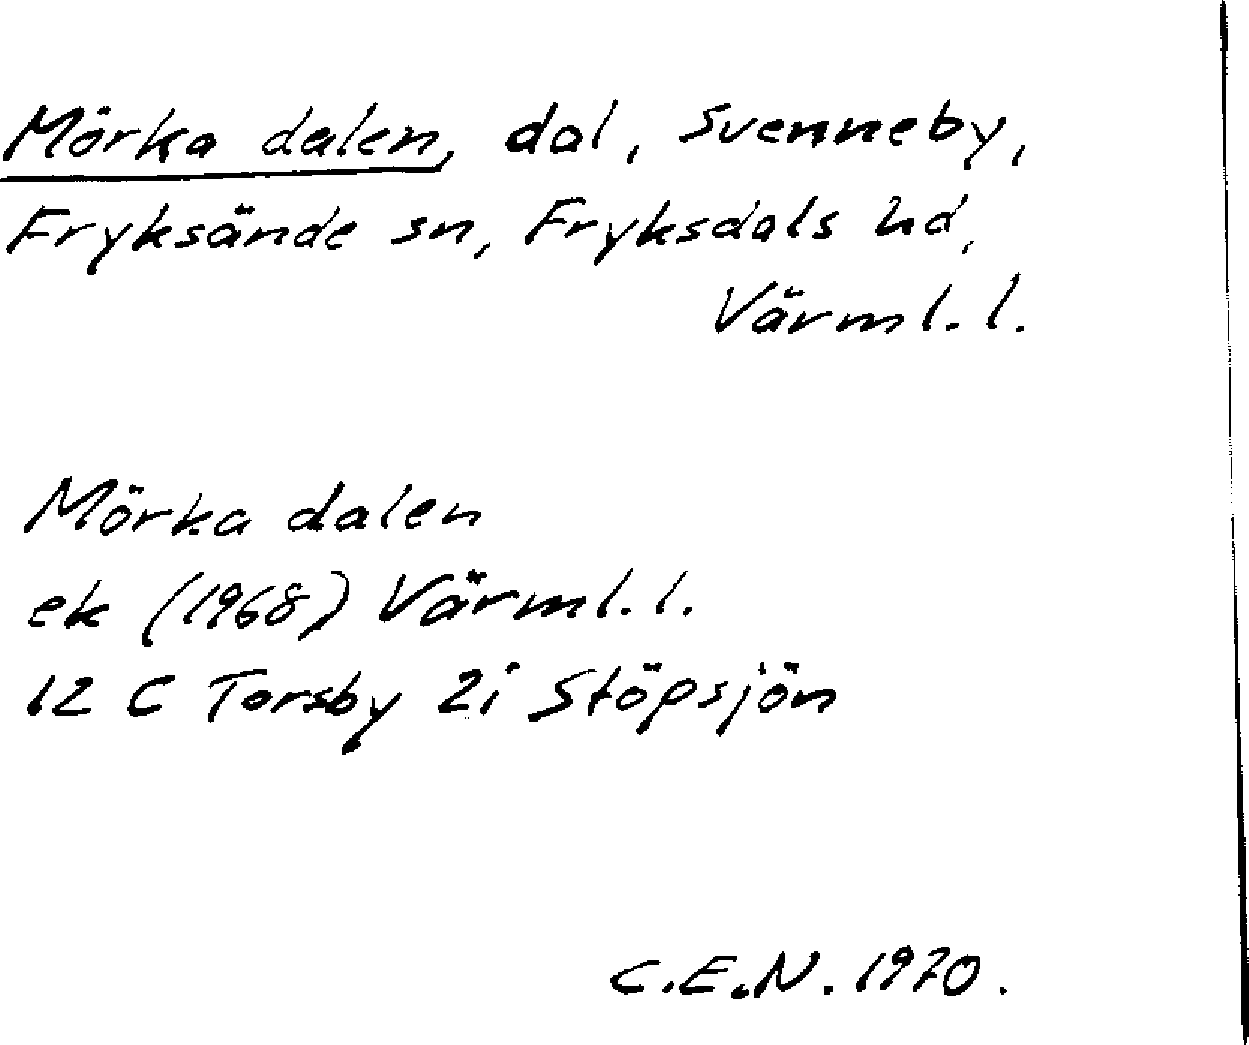 Mörka dalen, dal, Svenneby,
Fryksände sn, Fryksdals hd,
Värml. l.
Mörka dalen
ek (1968) Värml. l.
12 C Torsby 2i Stöpsjön
C.E.N. 1970.